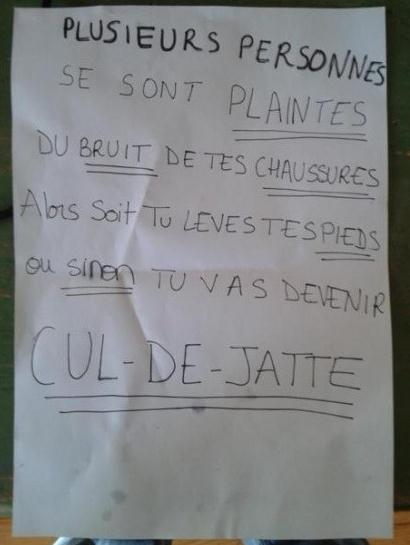 PLUSIEURS PERSONNES
SE SONT PLAINTES
DU BRUIT DE TES CHAUSSURES
Alors Soit TU LEVES TES PIEDS
ou sinon TU VAS DEVENIR
CUL-DE-JATTE